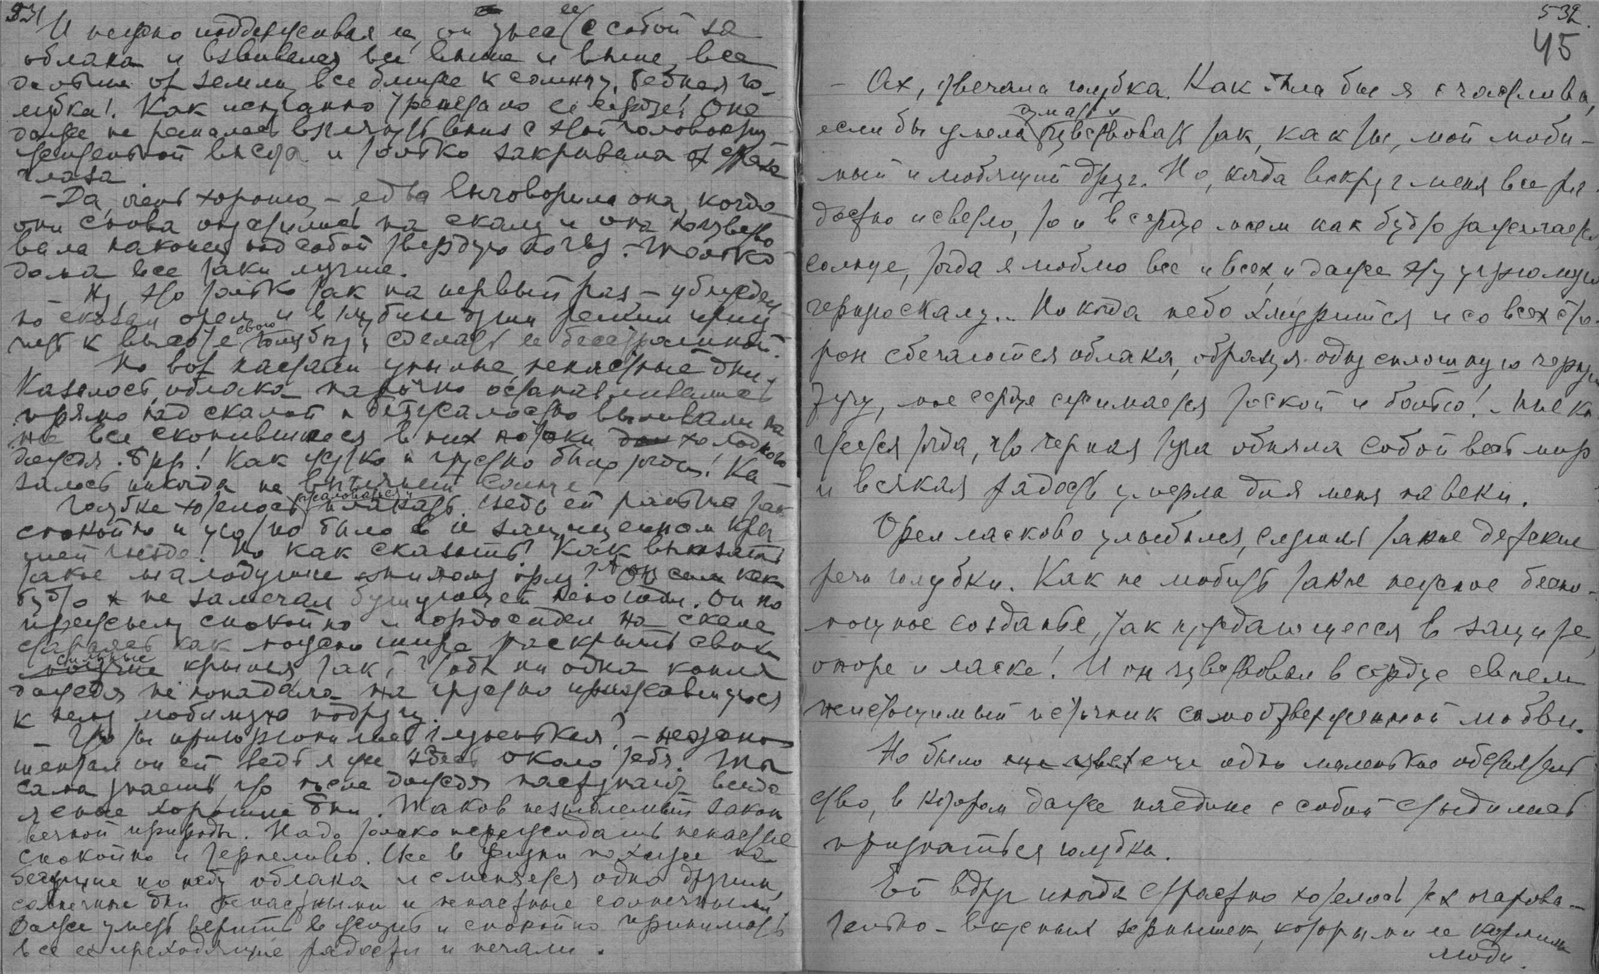 531
И нежно поддерживая ее, он унес ее с собой за
облака и взвивался все выше и выше, все
дальше от земли все ближе к солнцу. Бедная го-
лубка! Как испуганно трепетало ее сердце! Она
даже не решалась взглянуть вниз с этой головокру
жительной высоты и только закрывала от страха
глаза
– Да, очень хорошо, – едва выговорила она, когда
они снова опустились на скалу и она почувство
вала наконец под собой твердую почву. – Только
дома все таки лучше.
– Ну, это только так на первый раз, – убежден
но сказал орел и в глубине души решил приу
чить к высоте свою голубку и сделать ее бесстрашной.
Но вот настали унылые ненастные дни.
Казалось, облака нарочно останавливались
прямо над скалой и безжалостно выливали на
нее все скопившиеся в них потоки холодного
дождя. Брр! Как жутко и грустно было тогда! Ка-
залось никогда не выглянет солнце
Голубке хотелось плакать. Ведь ей раньше так
спокойно и уютно было в защищенном
гнезде! Но как сказать? Как высказать
такое малодушие орлу? Он сам как
будто и не замечал бушующей непогоды. Он по
прежнему спокойно и гордо сидел на скале
стараясь как можно шире раскрыть свои
сильные крылья так, чтобы ни одна капля
дождя не попадала на грустно прижавшуюся
к нему любимую подругу.
– Что ты пригорюнилась, глупенькая? –
шептал он ей ведь я же здесь около тебя. Ты
сама знаешь что после дождя наступают всегда
ясные хорошие дни. Таков незыблемый закон
вечной природы. Надо только переждать ненастье
спокойно и терпеливо. Все в жизни похоже на
бегущие по небу облака и сменяется одно другим,
солнечные дни ненастными и ненастные солнечными.
Надо уметь верить в жизнь и спокойно принимать
все ее преходящие радости и печали.
532.
45
– Ах, отвечала голубка. Как была бы я счастлива,
если бы умела думать и чувствовать так, как ты, мой люби-
мый и любящий друг. Но, когда вокруг меня все ра-
достно и светло, то и в сердце моем как будто зажигается
солнце, тогда я люблю все и всех, и даже эту угрюмую
черную скалу... Но когда небо хмурится и со всех сто-
рон сбегаются облака, образуя одну сплошную черную
тучу, мое сердце сжимается тоской и болью! Мне ка
жется тогда, что черная туча обняла собой весь мир
и всякая радость умерла для меня навеки.
Орел ласково улыбался, слушая такие детские
речи голубки. Как не любить такое нежное беспо-
мощное созданье, так нуждающееся в защите,
опоре и ласке! И он чувствовал в сердце своем
неистощимый источник самоотверженной любви.
Но было еще одно маленькое обстоятель
ство, в котором даже наедине с собой стыдилась
признаться голубка.
Ей вдруг иногда страстно хотелось тех очарова-
тельно-вкусных зернышек, которыми ее кормили
люди.